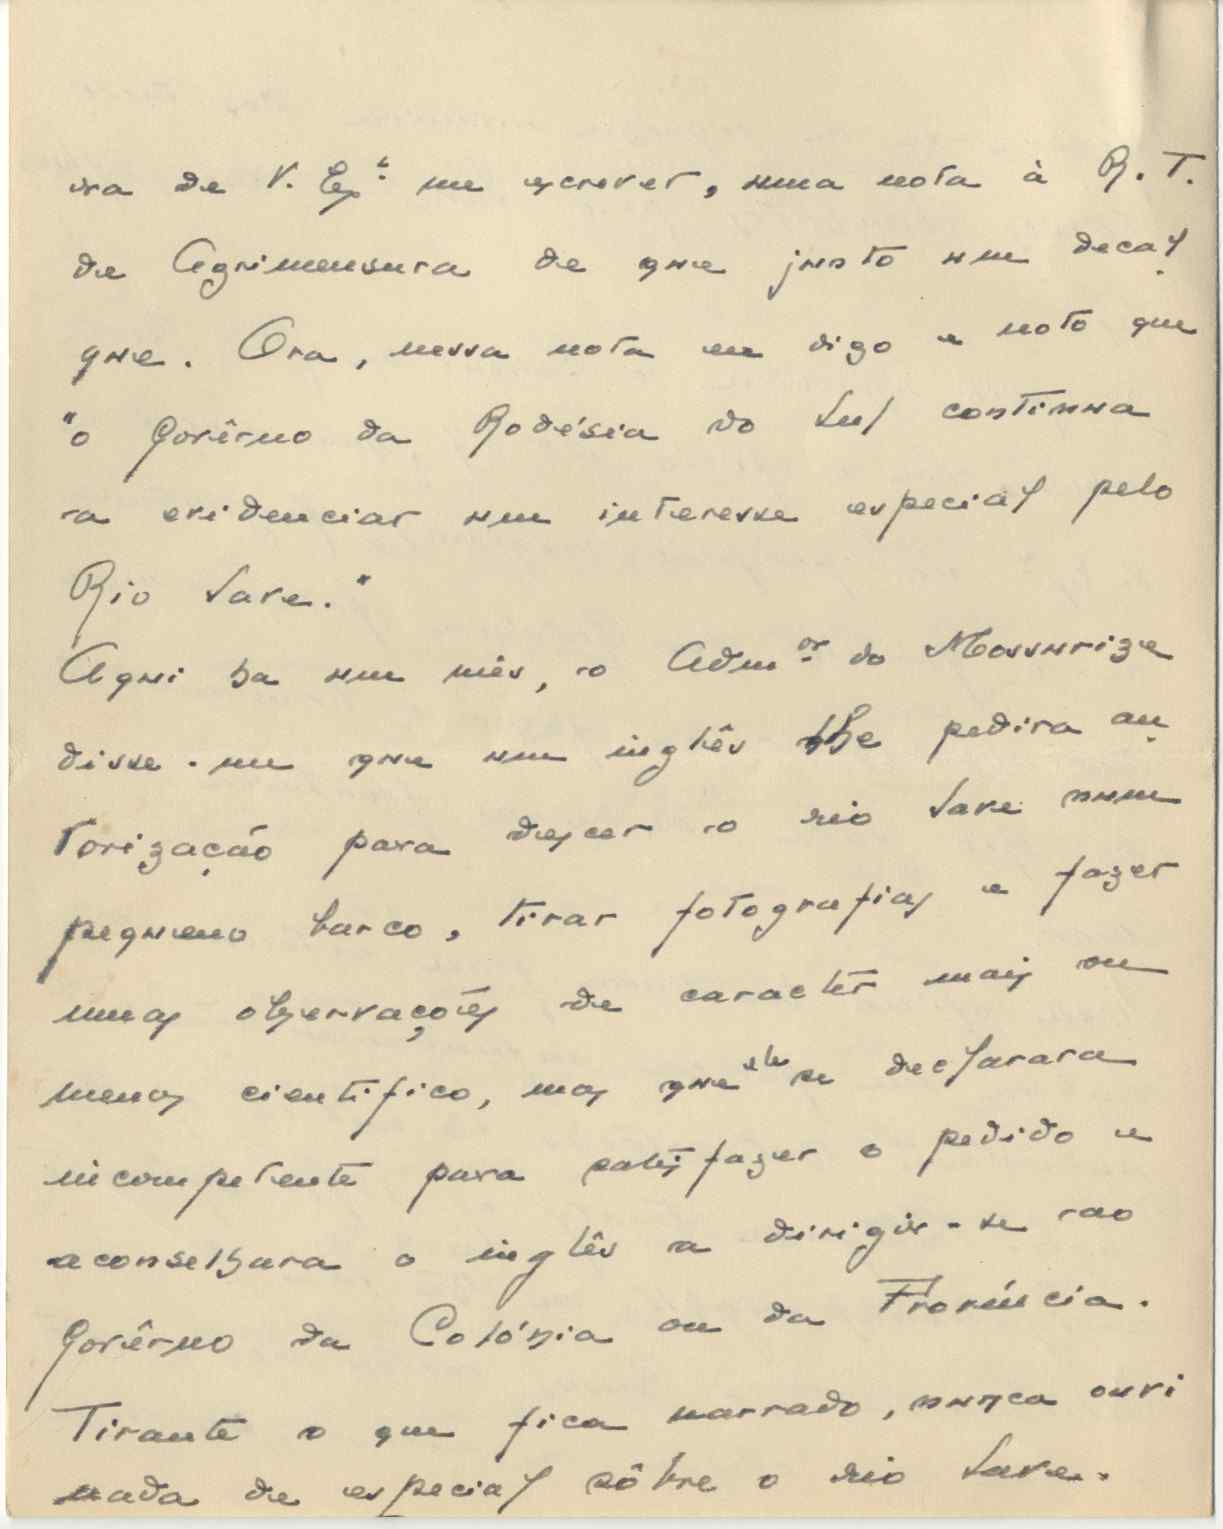 ora de V. Exª. me escrever, numa nota à R. T.
de Agrimensura de que junto um decal
que. Ora, nessa nota eu digo e noto que
"o Govêrno da Rodésia do Sul continua
a evidenciar um interesse especial pelo
Rio Save."
Aqui ha um mês, o Admor. do Mossurize
disse-me que um inglês lhe pedira au
torização para descer o rio Save num
pequeno barco, tirar fotografias e fazer
umas observações de caractér mais ou
menos cientifico, mas que ele se declarara
incompetente para satisfazer o pedido e
aconselhara o inglês a dirigir-se ao
Govêrno da Colónia ou da Província.
Tirante o que fica narrado, nunca ouvi
nada de especial sôbre o rio Save.